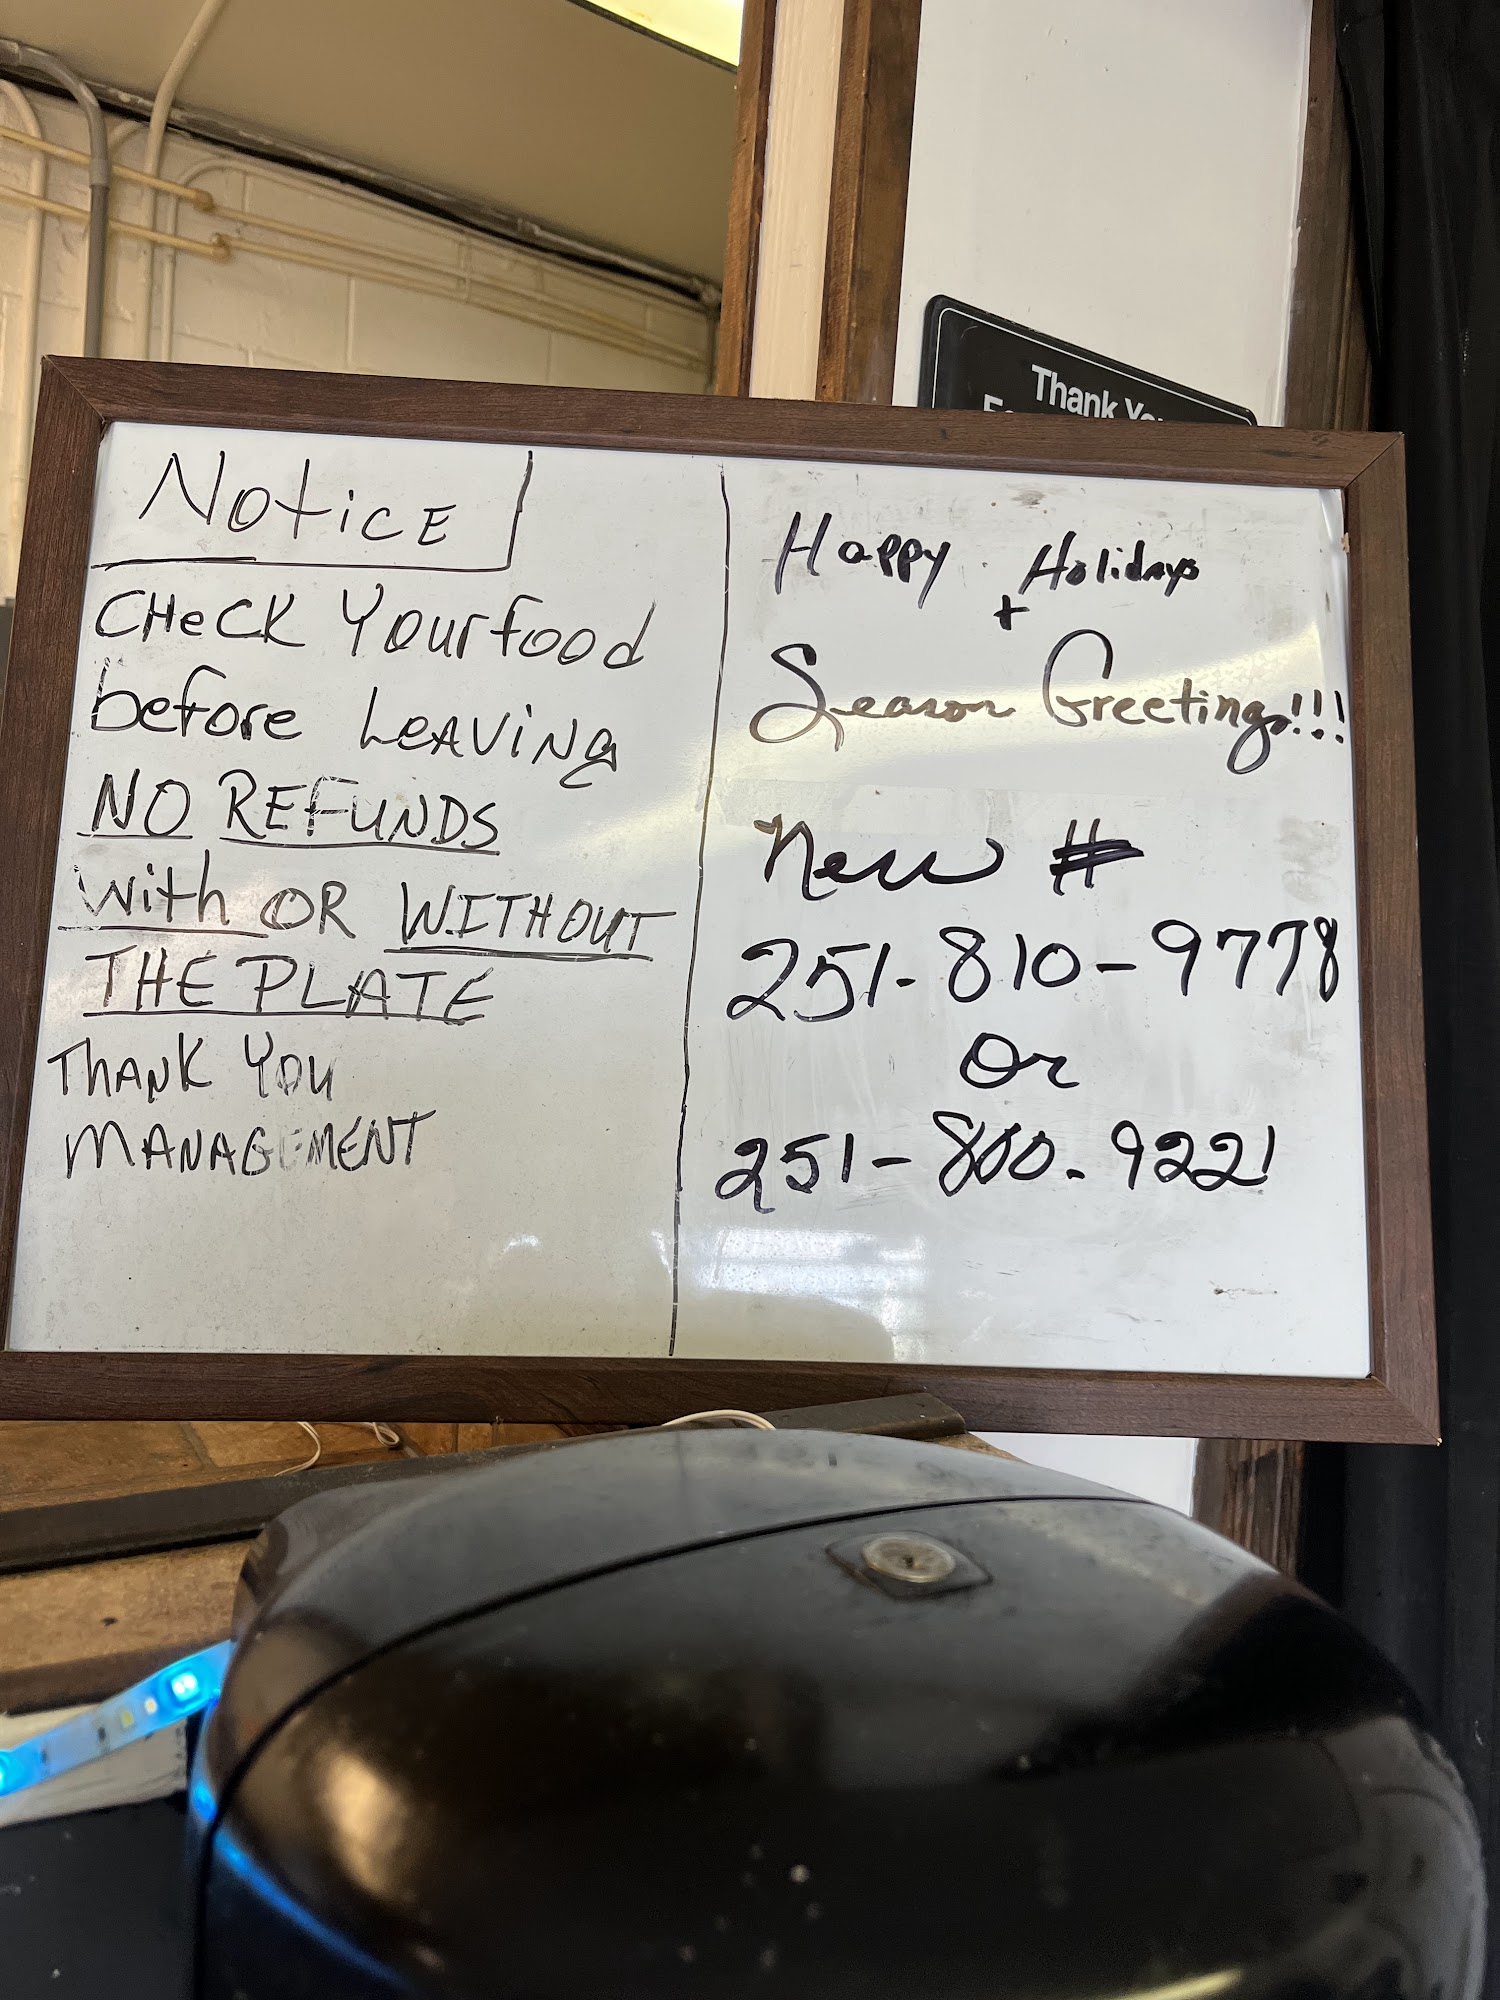 Thank You
NOTICE
CHeCK Your food
before LEAVING
NO REFUNDS
with OR WITHOUT
THE PLATE
THANK YOU
MANAGEMENT
Happy Holidays
+
Season Greetings!!!
New #
251-810-9778
Or
251-800-9221